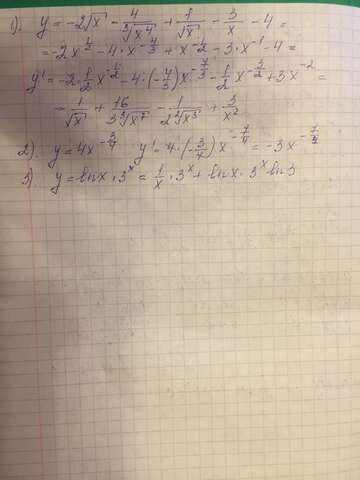 1). y = -2√x - 4/∛(x⁴) + 1/√x - 3/x - 4 =
= -2x^(1/2) - 4·x^(-4/3) + x^(-1/2) - 3·x^(-1) - 4 =
y' = -2·1/2 x^(-1/2) - 4·(-4/3)x^(-7/3) - 1/2 x^(-3/2) + 3x^(-2) =
- 1/√x + 16/(3∛(x⁷)) - 1/(2√(x³)) + 3/x²
2). y = 4x^(-3/4) y' = 4·(-3/4)x^(-7/4) = -3x^(-7/4)
3). y = lnx · 3^x = 1/x · 3^x + lnx · 3^x ln3